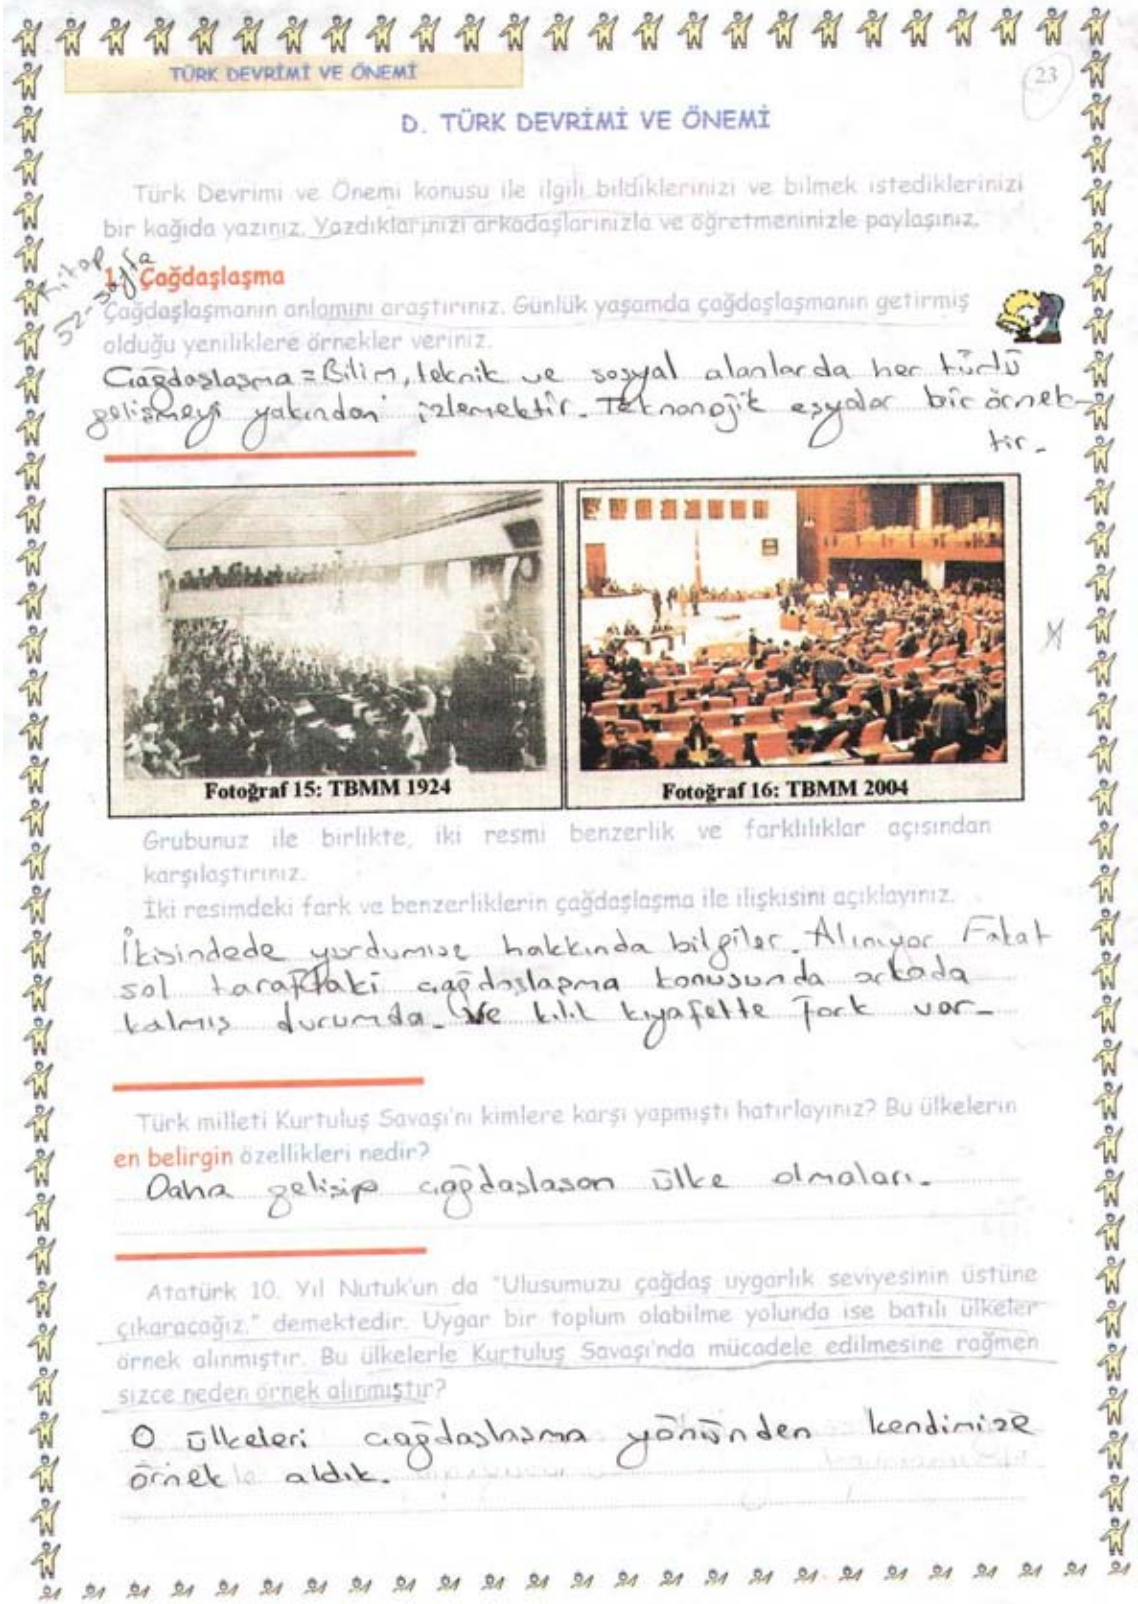 TÜRK DEVRİMİ VE ÖNEMİ
23
D. TÜRK DEVRİMİ VE ÖNEMİ
Türk Devrimi ve Önemi konusu ile ilgili bildiklerinizi ve bilmek istediklerinizi
bir kağıda yazınız. Yazdıklarınızı arkadaşlarınızla ve öğretmeninizle paylaşınız.
Kitap
52-sayfa
1. Çağdaşlaşma
Çağdaşlaşmanın anlamını araştırınız. Günlük yaşamda çağdaşlaşmanın getirmiş
olduğu yeniliklere örnekler veriniz.
Çağdaşlaşma = Bilim, teknik ve sosyal alanlarda her türlü
gelişmeyi yakından izlemektir. Teknanojik eşyalar bir örnek-
tir.
Fotoğraf 15: TBMM 1924
Fotoğraf 16: TBMM 2004
Grubunuz ile birlikte, iki resmi benzerlik ve farklılıklar açısından
karşılaştırınız.
İki resimdeki fark ve benzerliklerin çağdaşlaşma ile ilişkisini açıklayınız.
İkisindede yurdumuz hakkında bilgiler. Alınıyor Fakat
sol taraftaki çağdaşlaşma konusunda arkada
kalmış durumda. Ve kılık kıyafette fark var.
Türk milleti Kurtuluş Savaşı'nı kimlere karşı yapmıştı hatırlayınız? Bu ülkelerin
en belirgin özellikleri nedir?
Daha gelişip çağdaşlaşan ülke olmaları.
Atatürk 10. Yıl Nutuk'un da "Ulusumuzu çağdaş uygarlık seviyesinin üstüne
çıkaracağız." demektedir. Uygar bir toplum olabilme yolunda ise batılı ülkeler
örnek alınmıştır. Bu ülkelerle Kurtuluş Savaşı'nda mücadele edilmesine rağmen
sizce neden örnek alınmıştır?
O ülkeleri çağdaşlaşma yönünden kendimize
örnek aldık.